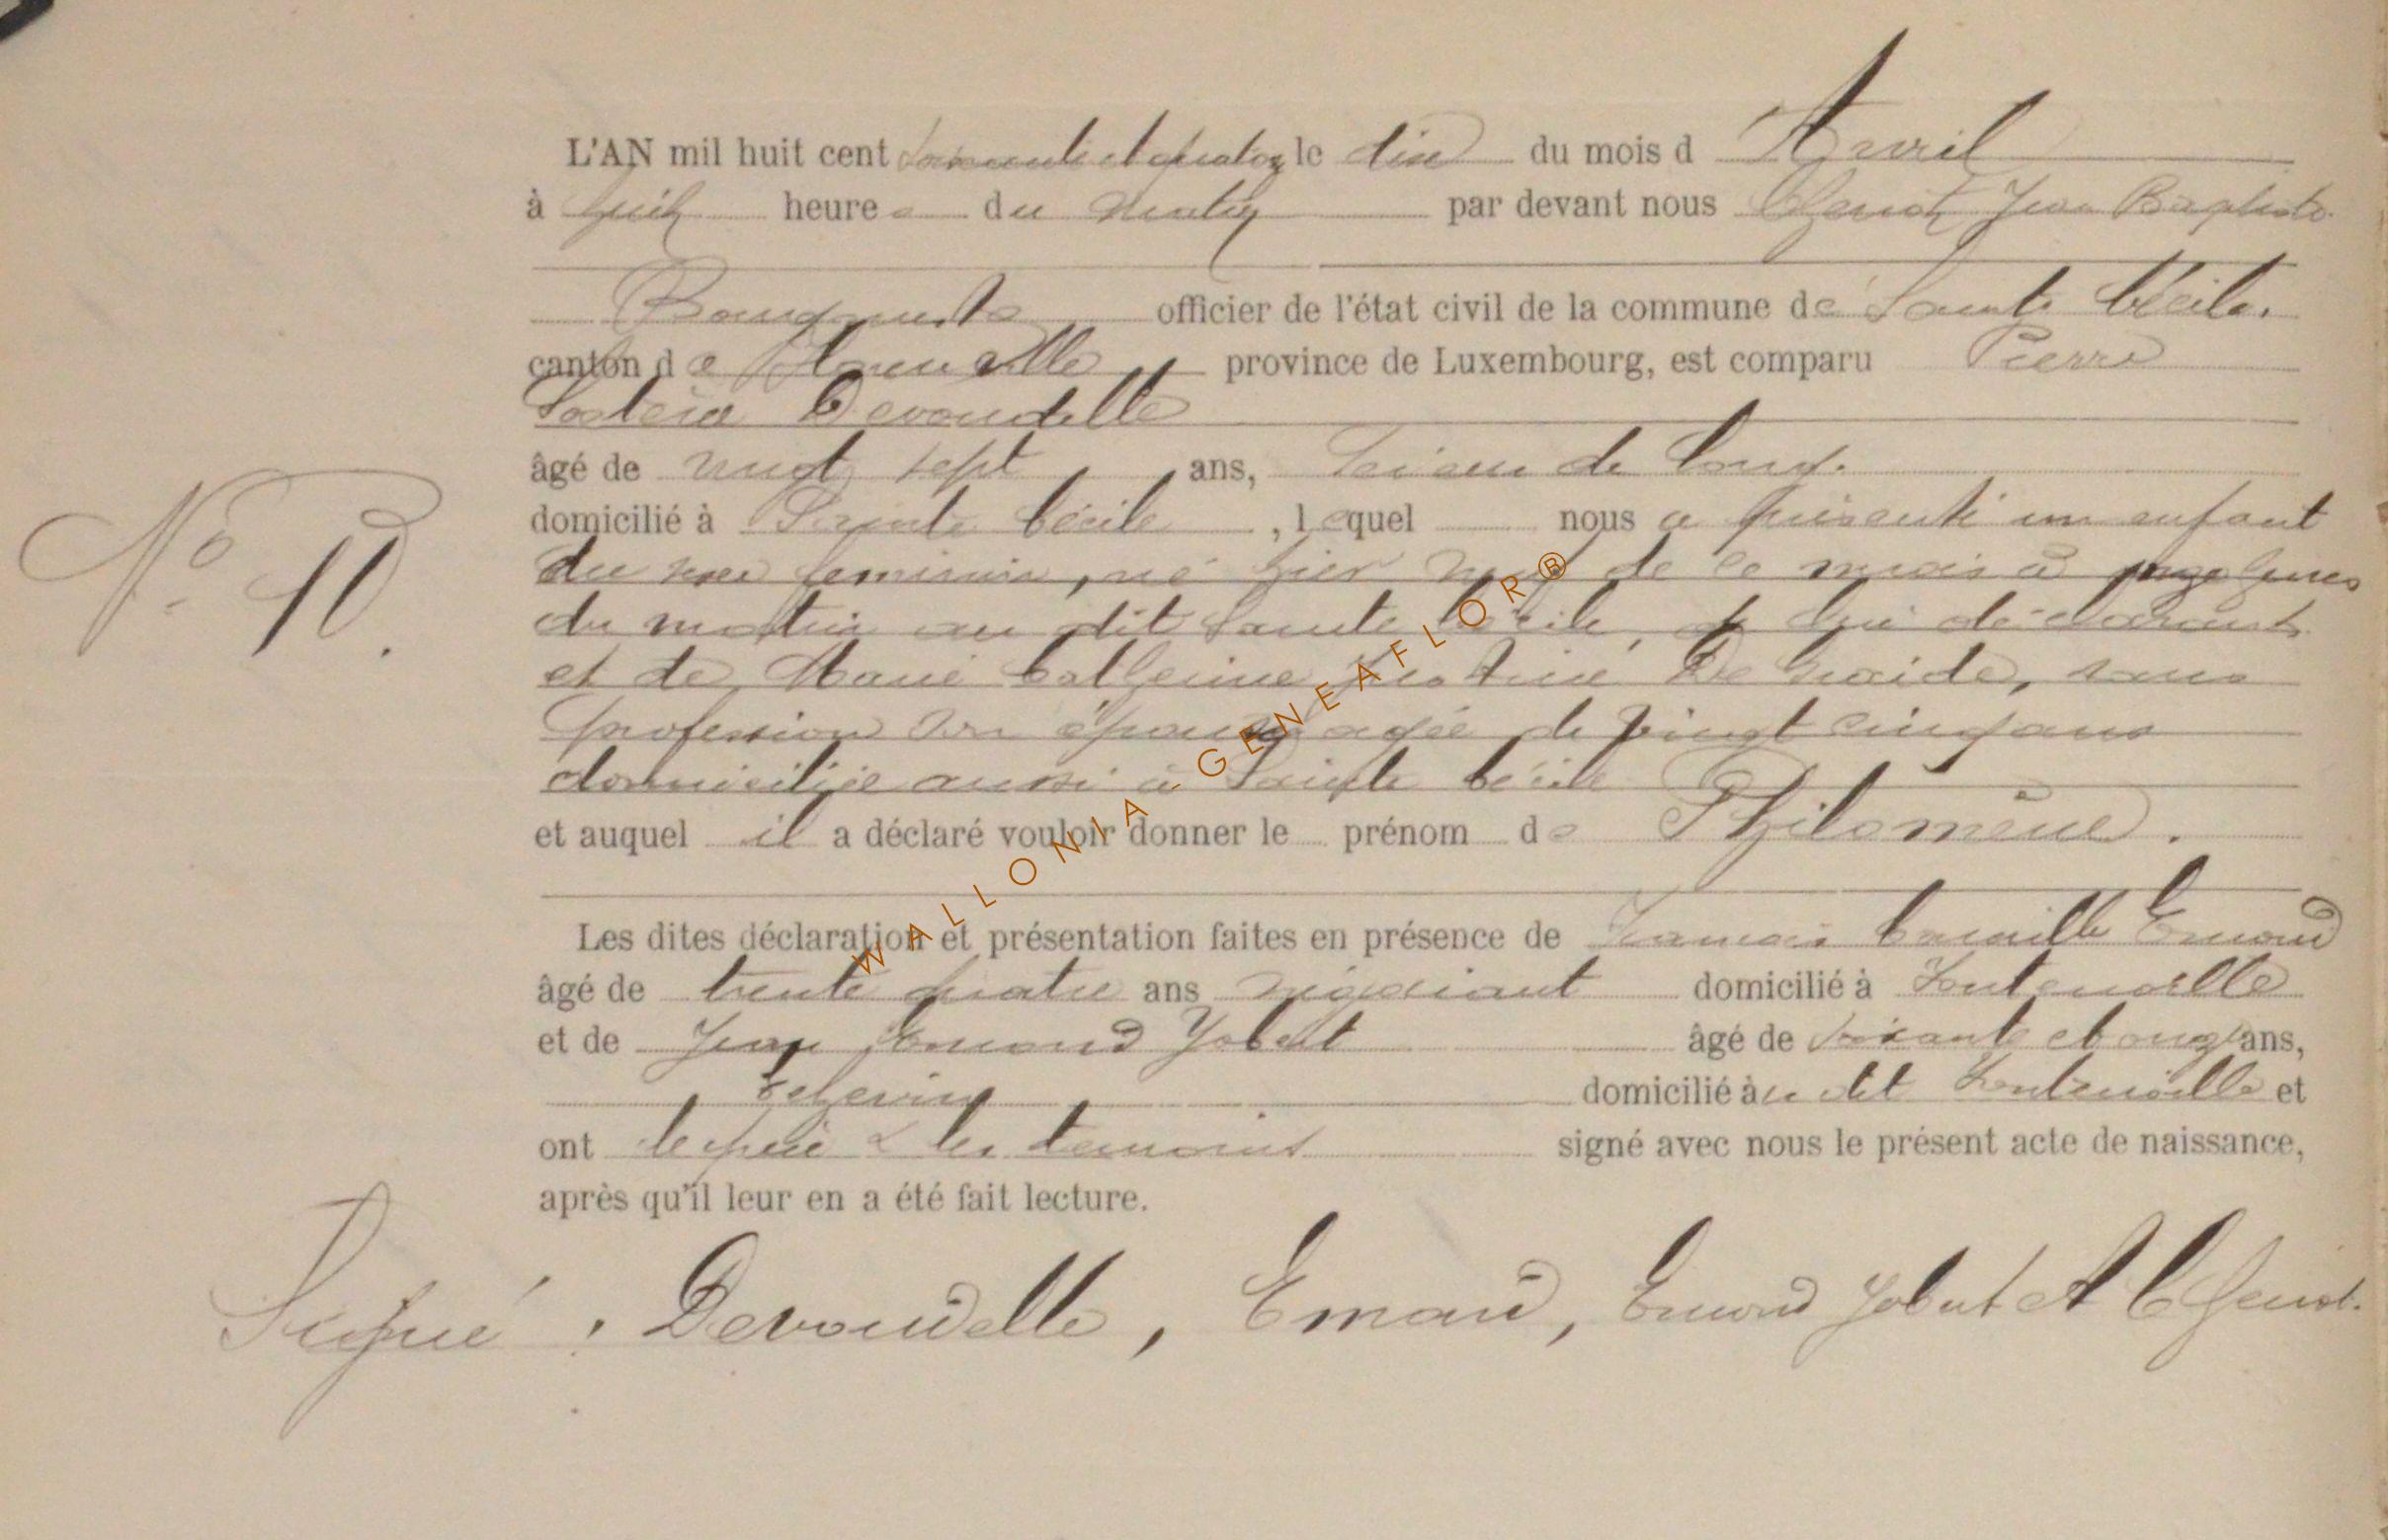 L'AN mil huit cent soixante et quatorze le dix du mois d Avril
à huit heures du matin par devant nous Jean Baptiste
Bourgmestre officier de l'état civil de la commune de Sainte Cécile.
canton de Florenville province de Luxembourg, est comparu Pierre
Devoudelle
âgé de vingt sept ans, Scieur de Long.
domicilié à Sainte Cécile, lequel nous a présenté un enfant
du sexe feminin, né hier neuf de ce mois à onze heures
du matin au dit Sainte Cécile, de lui déclarant
et de Marie Catherine De Graide, sans
profession son épouse agée de vingt cinq ans
domiciliée aussi à Sainte Cécile
et auquel il a déclaré vouloir donner le prénom de Philomène.
Les dites déclaration et présentation faites en présence de François Camille Emond
âgé de trente quatre ans négociant domicilié à Fontenoille
et de Jean Emond Jobert âgé de soixante et onze ans,
echevin domicilié au dit Fontenoille et
ont le père & les temoins signé avec nous le présent acte de naissance,
après qu'il leur en a été fait lecture.
N° 10.
Signé : Devoudelle, Emond, Emond Jobert et
WALLONIA-GENEAFLOR®